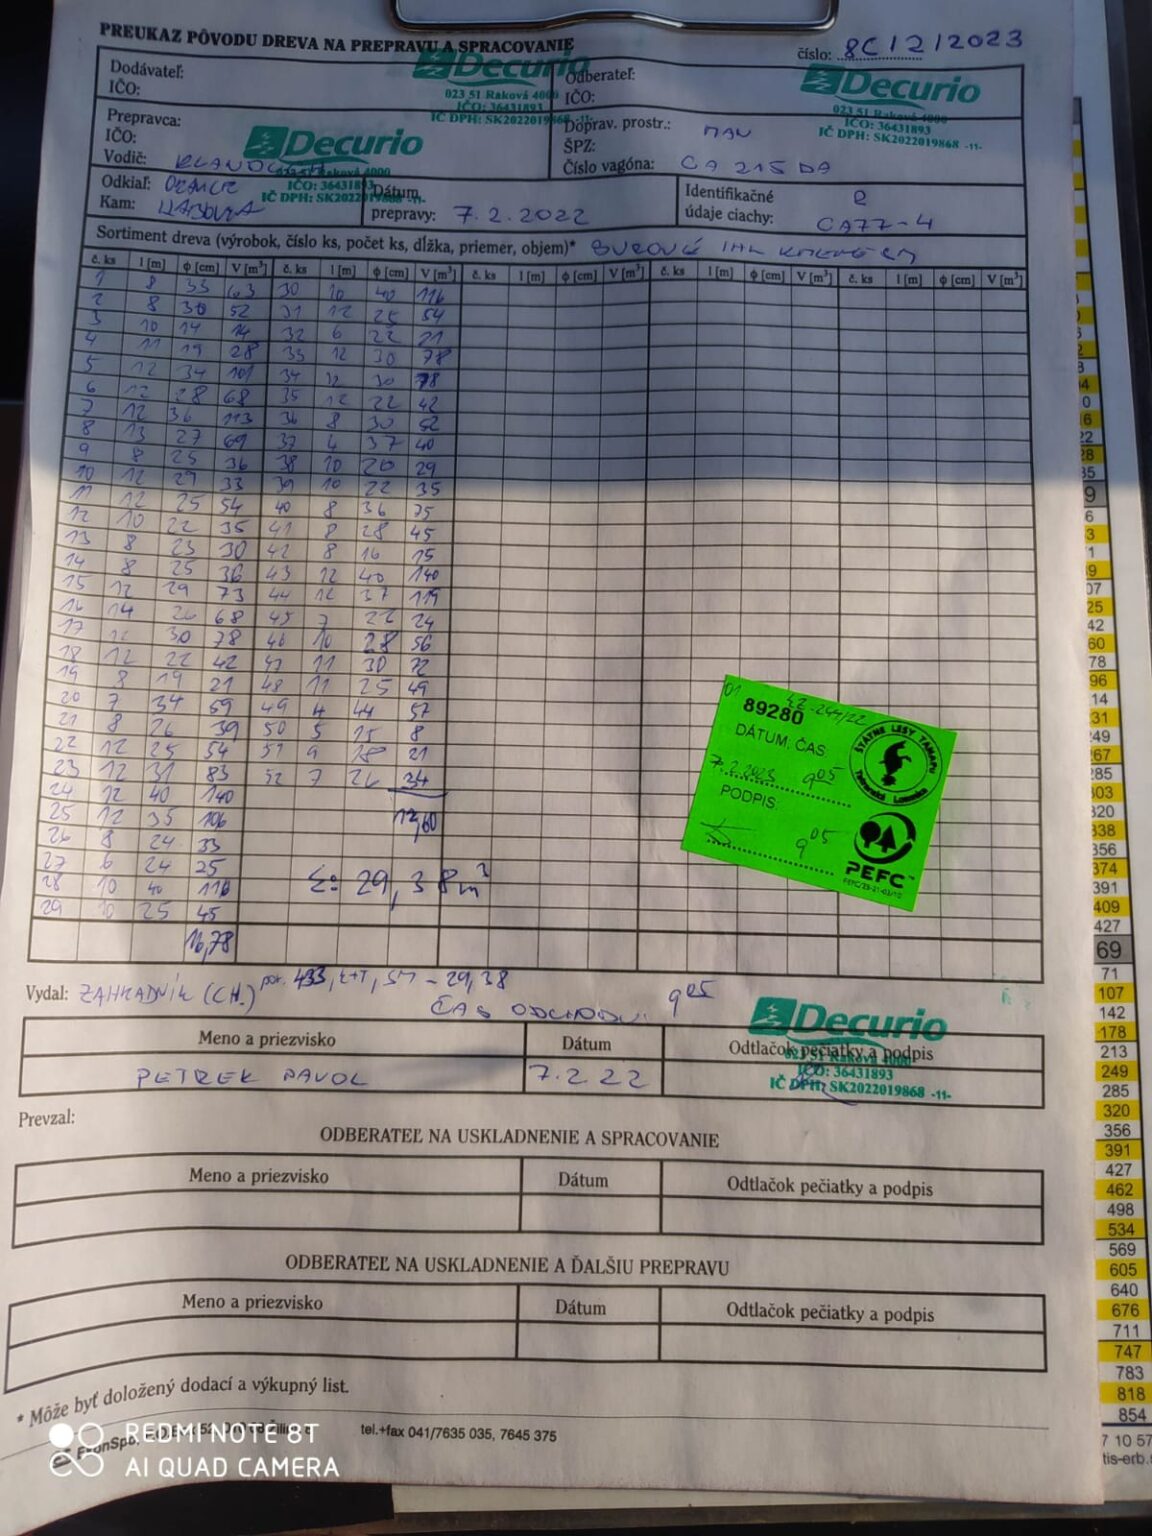 PREUKAZ PÔVODU DREVA NA PREPRAVU A SPRACOVANIE
číslo: 8C/2/2023
Dodávateľ:
IČO:
Decurio
023 51 Raková 4000
IČO: 36431893
IČ DPH: SK2022019868 -11-
Odberateľ:
IČO:
Decurio
023 51 Raková 4000
IČO: 36431893
IČ DPH: SK2022019868 -11-
Prepravca:
IČO:
Vodič:
Decurio
023 51 Raková 4000
IČO: 36431893
IČ DPH: SK2022019868 -11-
Doprav. prostr.: MAN
ŠPZ:
Číslo vagóna: CA 215 DA
Odkiaľ:
Kam:
Dátum
prepravy: 7.2.2022
Identifikačné
údaje ciachy: CA77-4
Sortiment dreva (výrobok, číslo ks, počet ks, dĺžka, priemer, objem)*
č. ks l [m] ϕ [cm] V [m³] č. ks l [m] ϕ [cm] V [m³] č. ks l [m] ϕ [cm] V [m³] č. ks l [m] ϕ [cm] V [m³] č. ks l [m] ϕ [cm] V [m³]
1 8 33 63 30 10 40 116
2 8 30 52 31 12 25 54
3 10 14 14 32 6 22 21
4 11 19 28 33 12 30 78
5 12 34 101 34 12 30 78
6 12 28 68 35 12 22 42
7 12 36 113 36 8 30 52
8 13 27 69 37 4 37 40
9 8 25 36 38 10 20 29
10 12 29 33 39 10 22 35
11 12 25 54 40 8 36 75
12 10 22 35 41 8 28 45
13 8 23 30 42 8 16 15
14 8 25 36 43 12 40 140
15 12 29 73 44 12 37 119
16 14 26 68 45 7 22 24
17 12 30 78 46 10 28 56
18 12 22 42 47 11 30 72
19 8 19 21 48 11 25 49
20 7 34 59 49 4 44 57
21 8 26 39 50 5 15 8
22 12 25 54 51 9 18 21
23 12 31 83 52 7 26 34
24 12 40 140
25 12 35 106 12,60
26 8 24 33
27 6 24 25
28 10 40 116 Σ= 29,38m³
29 10 25 45
16,78
01
89280
DÁTUM, ČAS
7.2.2023 9 05
PODPIS
9 05
ŠTÁTNE LESY TANAPU
Tatranská Lomnica
PEFC™
Vydal: ZAHRADNÍK (CH.) por. 433, SM - 29,38
ČAS ODCHODU: 9 05
Meno a priezvisko Dátum Odtlačok pečiatky a podpis
PETREK PAVOL 7.2 22
Decurio
023 51 Raková 4000
IČO: 36431893
IČ DPH: SK2022019868 -11-
Prevzal:
ODBERATEĽ NA USKLADNENIE A SPRACOVANIE
Meno a priezvisko Dátum Odtlačok pečiatky a podpis
ODBERATEĽ NA USKLADNENIE A ĎALŠIU PREPRAVU
Meno a priezvisko Dátum Odtlačok pečiatky a podpis
* Môže byť doložený dodací a výkupný list.
tel.+fax 041/7635 035, 7645 375
REDMI NOTE 8T
AI QUAD CAMERA
69
71
107
142
178
213
249
285
320
356
391
427
462
498
534
569
605
640
676
711
747
783
818
854